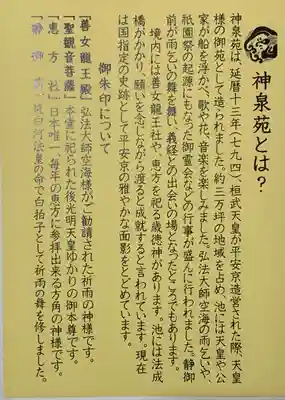 神泉苑とは？
神泉苑は、延暦十三年（七九四）、桓武天皇が平安京造営された際、天皇
様の御苑として造られました。約三万坪の地域を占め、池には天皇や公
家が船を浮かべ、歌や花、音楽を楽しみました。弘法大師空海の雨乞いや、
祇園祭の起源にもなった御霊会などの行事が盛んに行われました。静御
前が雨乞いの舞を舞い、義経との出会いの場となったところでもあります。
境内には善女龍王社や、恵方を祀る歳徳神があります。池には法成
橋がかかり、願いを念じながら渡ると成就すると言われています。現在
は国指定の史跡として平安京の雅やかな面影をとどめています。
御朱印について
「善女龍王殿」弘法大師空海様がご勧請された祈雨の神様です。
「聖観音菩薩」本堂に祀られた後光明天皇ゆかりの御本尊です。
「恵方社」日本唯一、毎年の恵方に参拝出来る方角の神様です。
「静御前」後白河法皇の命で白拍子として祈雨の舞を修しました。